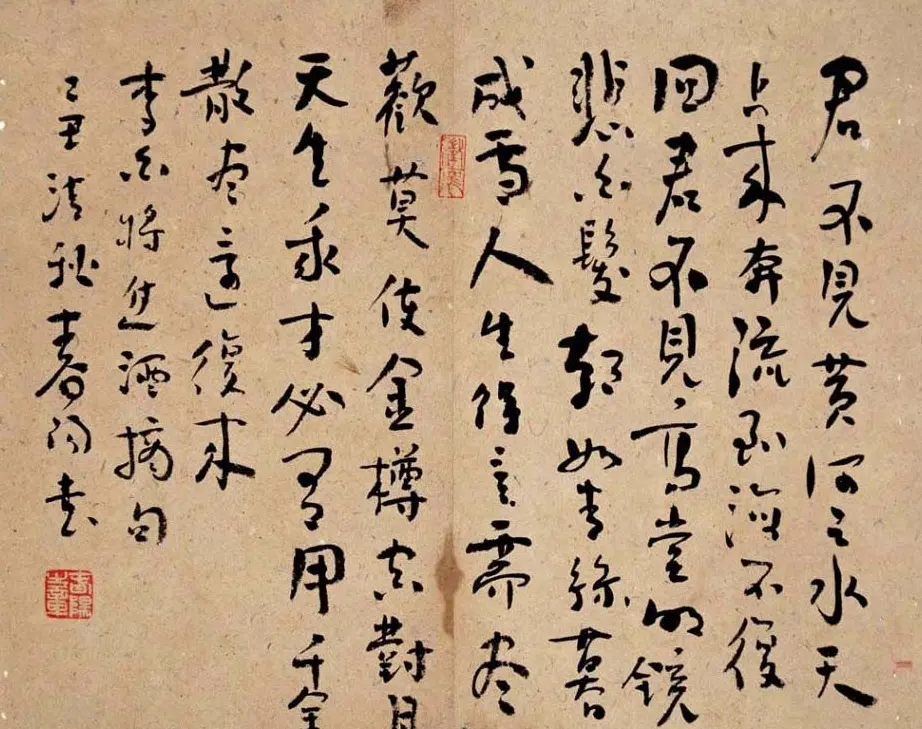 君不見黄河之水天
上来奔流到海不復
回君不見高堂明鏡
悲白髮朝如青絲暮
成雪人生得意需尽
歡莫使金樽空對月
天生我才必有用千金
散尽還復来
李白將進酒摘句
己丑清秋春书